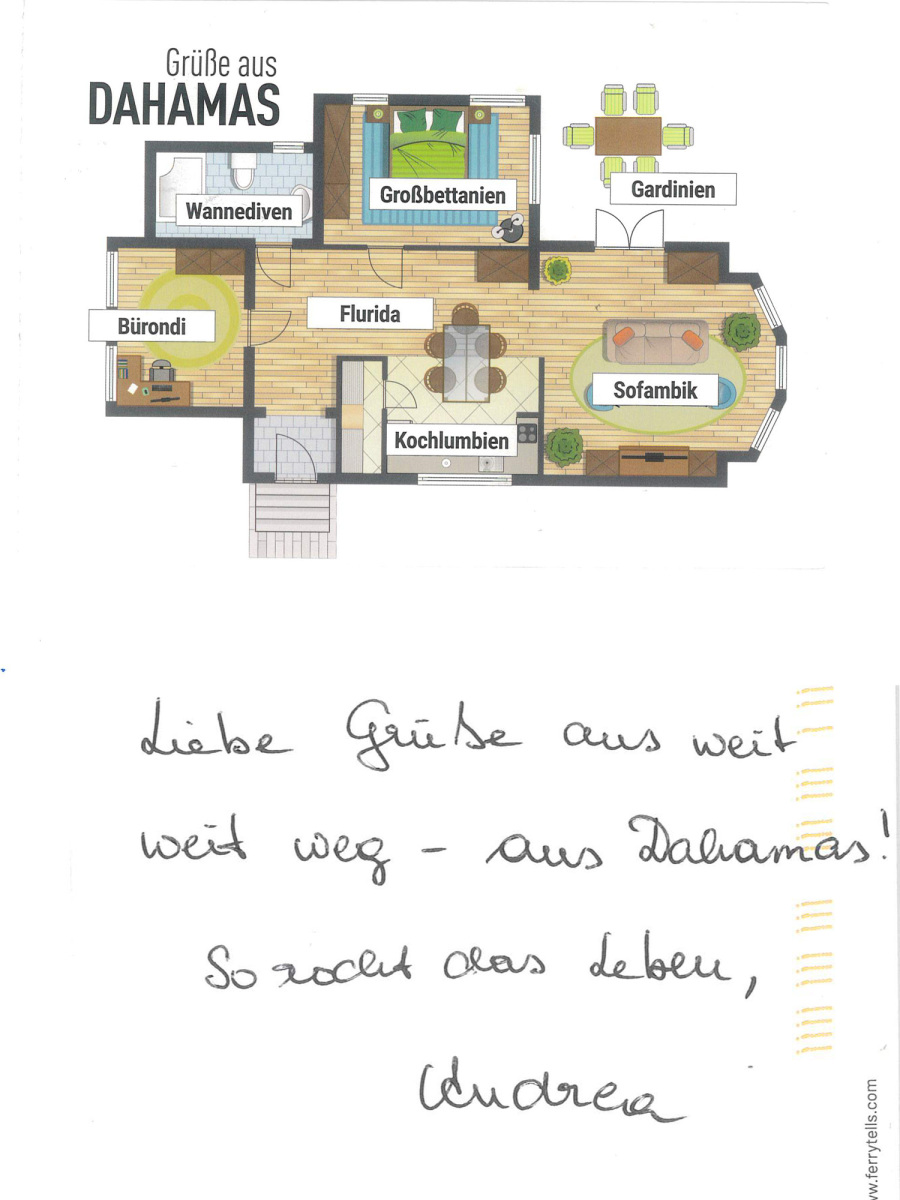 Grüße aus
DAHAMAS
Wannediven
Großbettanien
Gardinien
Bürondi
Flurida
Sofambik
Kochlumbien
Liebe Grüße aus weit
weit weg – aus Dahamas!
So rockt das Leben,
Andrea
ww.ferrytells.com